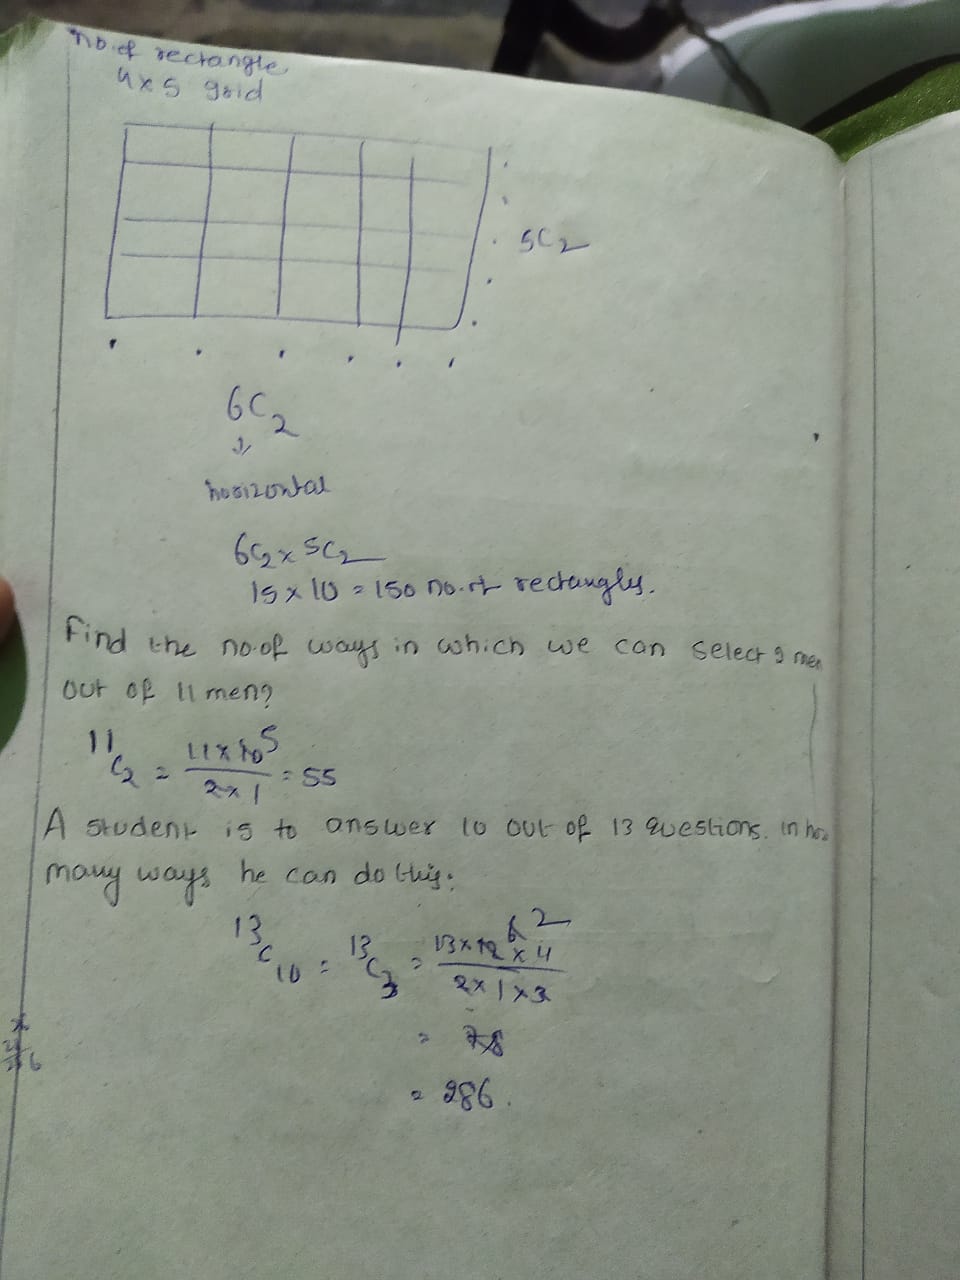 no. of rectangle
4x5 grid
5C2
6C2
↓
horizontal
6C2 x 5C2
15 x 10 = 150 no. of rectangles.
Find the no. of ways in which we can select 9 men
out of 11 men?
11C2 = 11 x 10 5 / 2 x 1 = 55
A student is to answer 10 out of 13 questions. in how
many ways he can do this.
13C10 = 13C3 = 13 x 12 6 2 x 4 / 2 x 1 x 3
= 78
= 286.